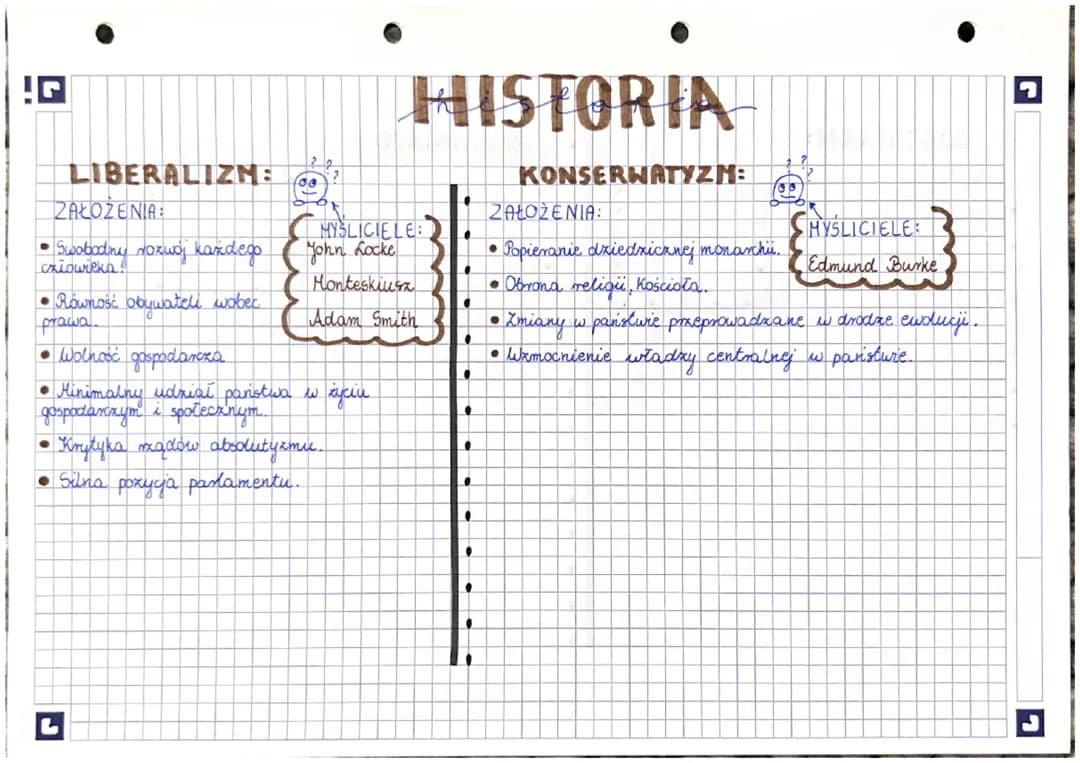 HISTORIA
historia
LIBERALIZM:
? ? ?
ZAŁOŻENIA:
• Swobodny rozwój każdego
człowieka.
• Równość obywateli wobec
prawa.
• Wolność gospodarcza
• Minimalny udział państwa w życiu
gospodarczym i społecznym.
• Krytyka rządów absolutyzmu.
• Silna pozycja parlamentu.
MYŚLICIELE:
John Locke
Monteskiusz
Adam Smith
KONSERWATYZM:
? ? ?
ZAŁOŻENIA:
• Popieranie dziedzicznej monarchii.
• Obrona religii, Kościoła.
• Zmiany w państwie przeprowadzane w drodze ewolucji.
• Wzmocnienie władzy centralnej w państwie.
MYŚLICIELE:
Edmund Burke